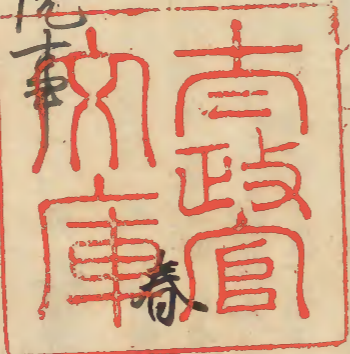 太政官
文庫
春